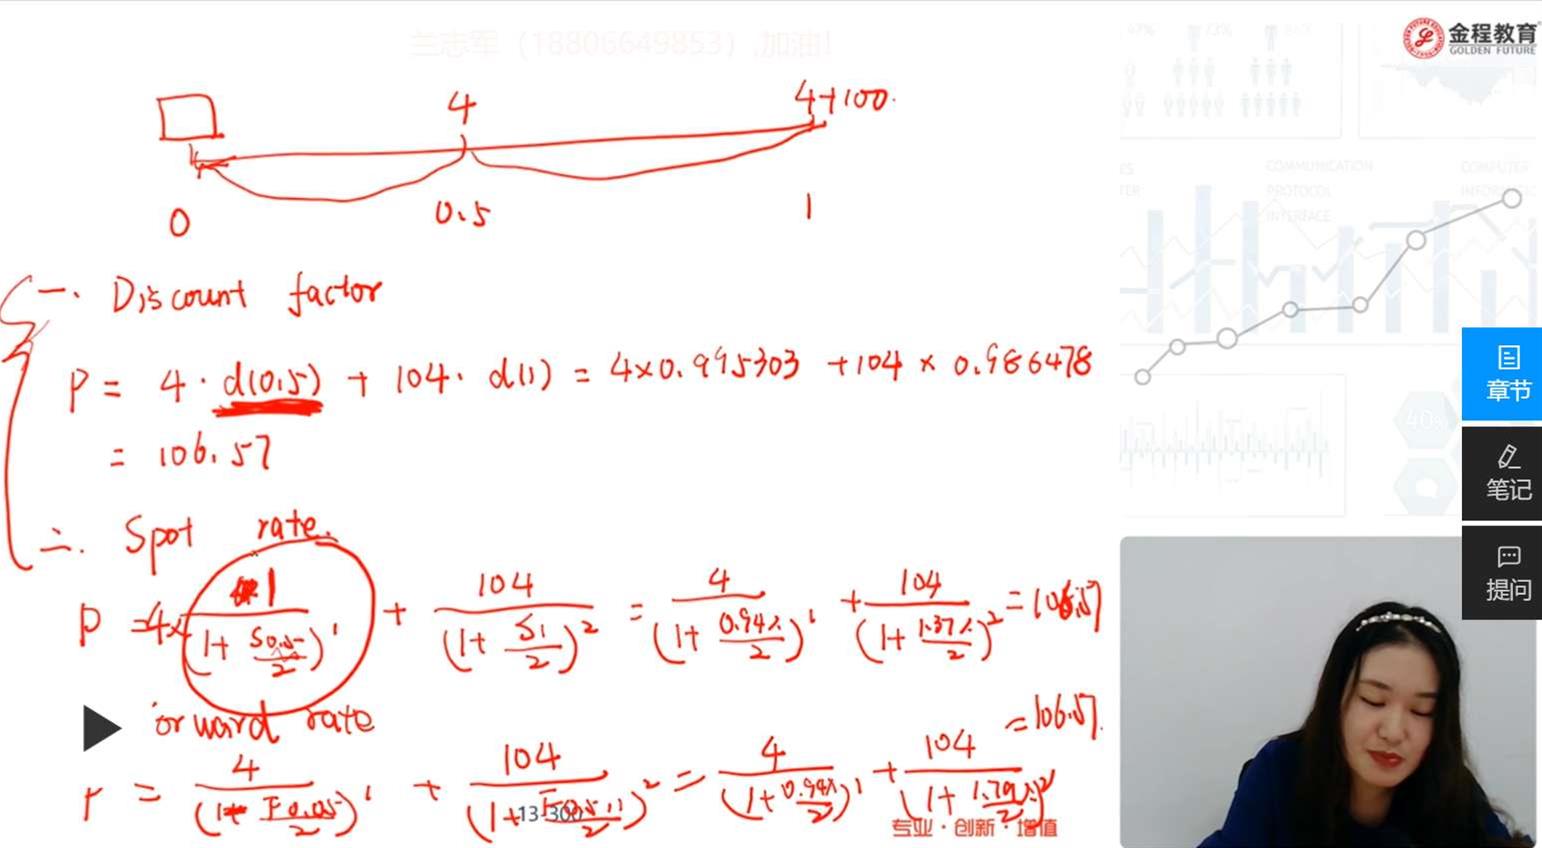 兰志军（18806649853）,加油!
金程教育
GOLDEN FUTURE
47% 73%
4 4+100.
0 0.5 1
COMMUNICATION
PROTOCOL
INTERFACE
COMPUTER
一. Discount factor
P = 4 · d(0.5) + 104 · d(1) = 4×0.995303 + 104 × 0.986478
= 106.57
章节
笔记
提问
40%
二. Spot rate.
P = 4× 1/(1+ S0.5/2)^1 + 104/(1+ S1/2)^2 = 4/(1+ 0.94%/2)^1 + 104/(1+ 1.37%/2)^2 = 106.57
orward rate
= 4/(1+ F0,0.5/2)^1 + 104/(1+ F0.5,1/2)^2 = 4/(1+ 0.94%/2)^1 + 104/(1+ 1.79%/2)^2 = 106.57.
13-300
专业·创新·增值